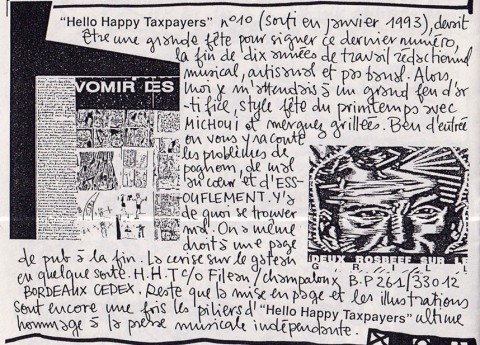 "Hello Happy Taxpayers" n°10 (sorti en janvier 1993), devait
être une grande fête pour signer ce dernier numéro,
la fin de dix années de travail rédactionnel
musical, artisanal et pas banal. Alors,
moi je m'attendais à un grand feu d'ar-
tifice, style fête du printemps avec
MICHOUI et merguez grillées. Ben d'entrée
on vous y raconte
les problèmes de
pognon, de mal
au cœur et d'ESS-
OUFLEMENT. Y'a
de quoi se trouver
mal. On a même
droit à une page
de pub à la fin. La cerise sur le gateau
en quelque sorte. H.H.T c/o Fileau / champaloux B.P 261/33012
BORDEAUX CEDEX. Reste que la mise en page et les illustrations
sont encore une fois les piliers d'"Hello Happy Taxpayers" ultime
hommage à la presse musicale indépendante.
VOMIR DES
DEUX ROSBEEF SUR LE
GRILL